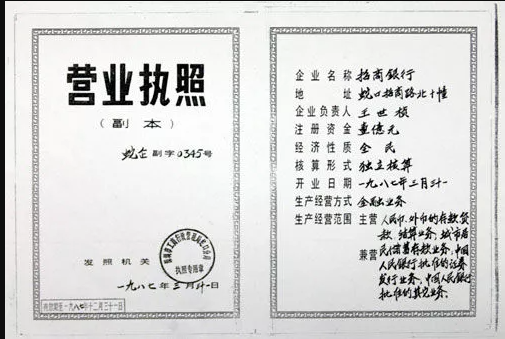 营业执照
(副本)
蛇企 副字 0345号
发照机关
执照专用章
一九八七年三月廿一日
有效期至一九八七年十二月三十一日
企业名称 招商银行
地址 蛇口招商路北十幢
企业负责人 王世桢
注册资金 壹億元
经济性质 全民
核算形式 独立核算
开业日期 一九八七年三月廿一
生产经营方式 金融业务
生产经营范围 主营 人民币、外币的存款贷
款、结算业务、城市居
民储蓄存款业务、中国
兼营 人民银行批准的证券
发行业务、中国人民银行
批准的其它业务。